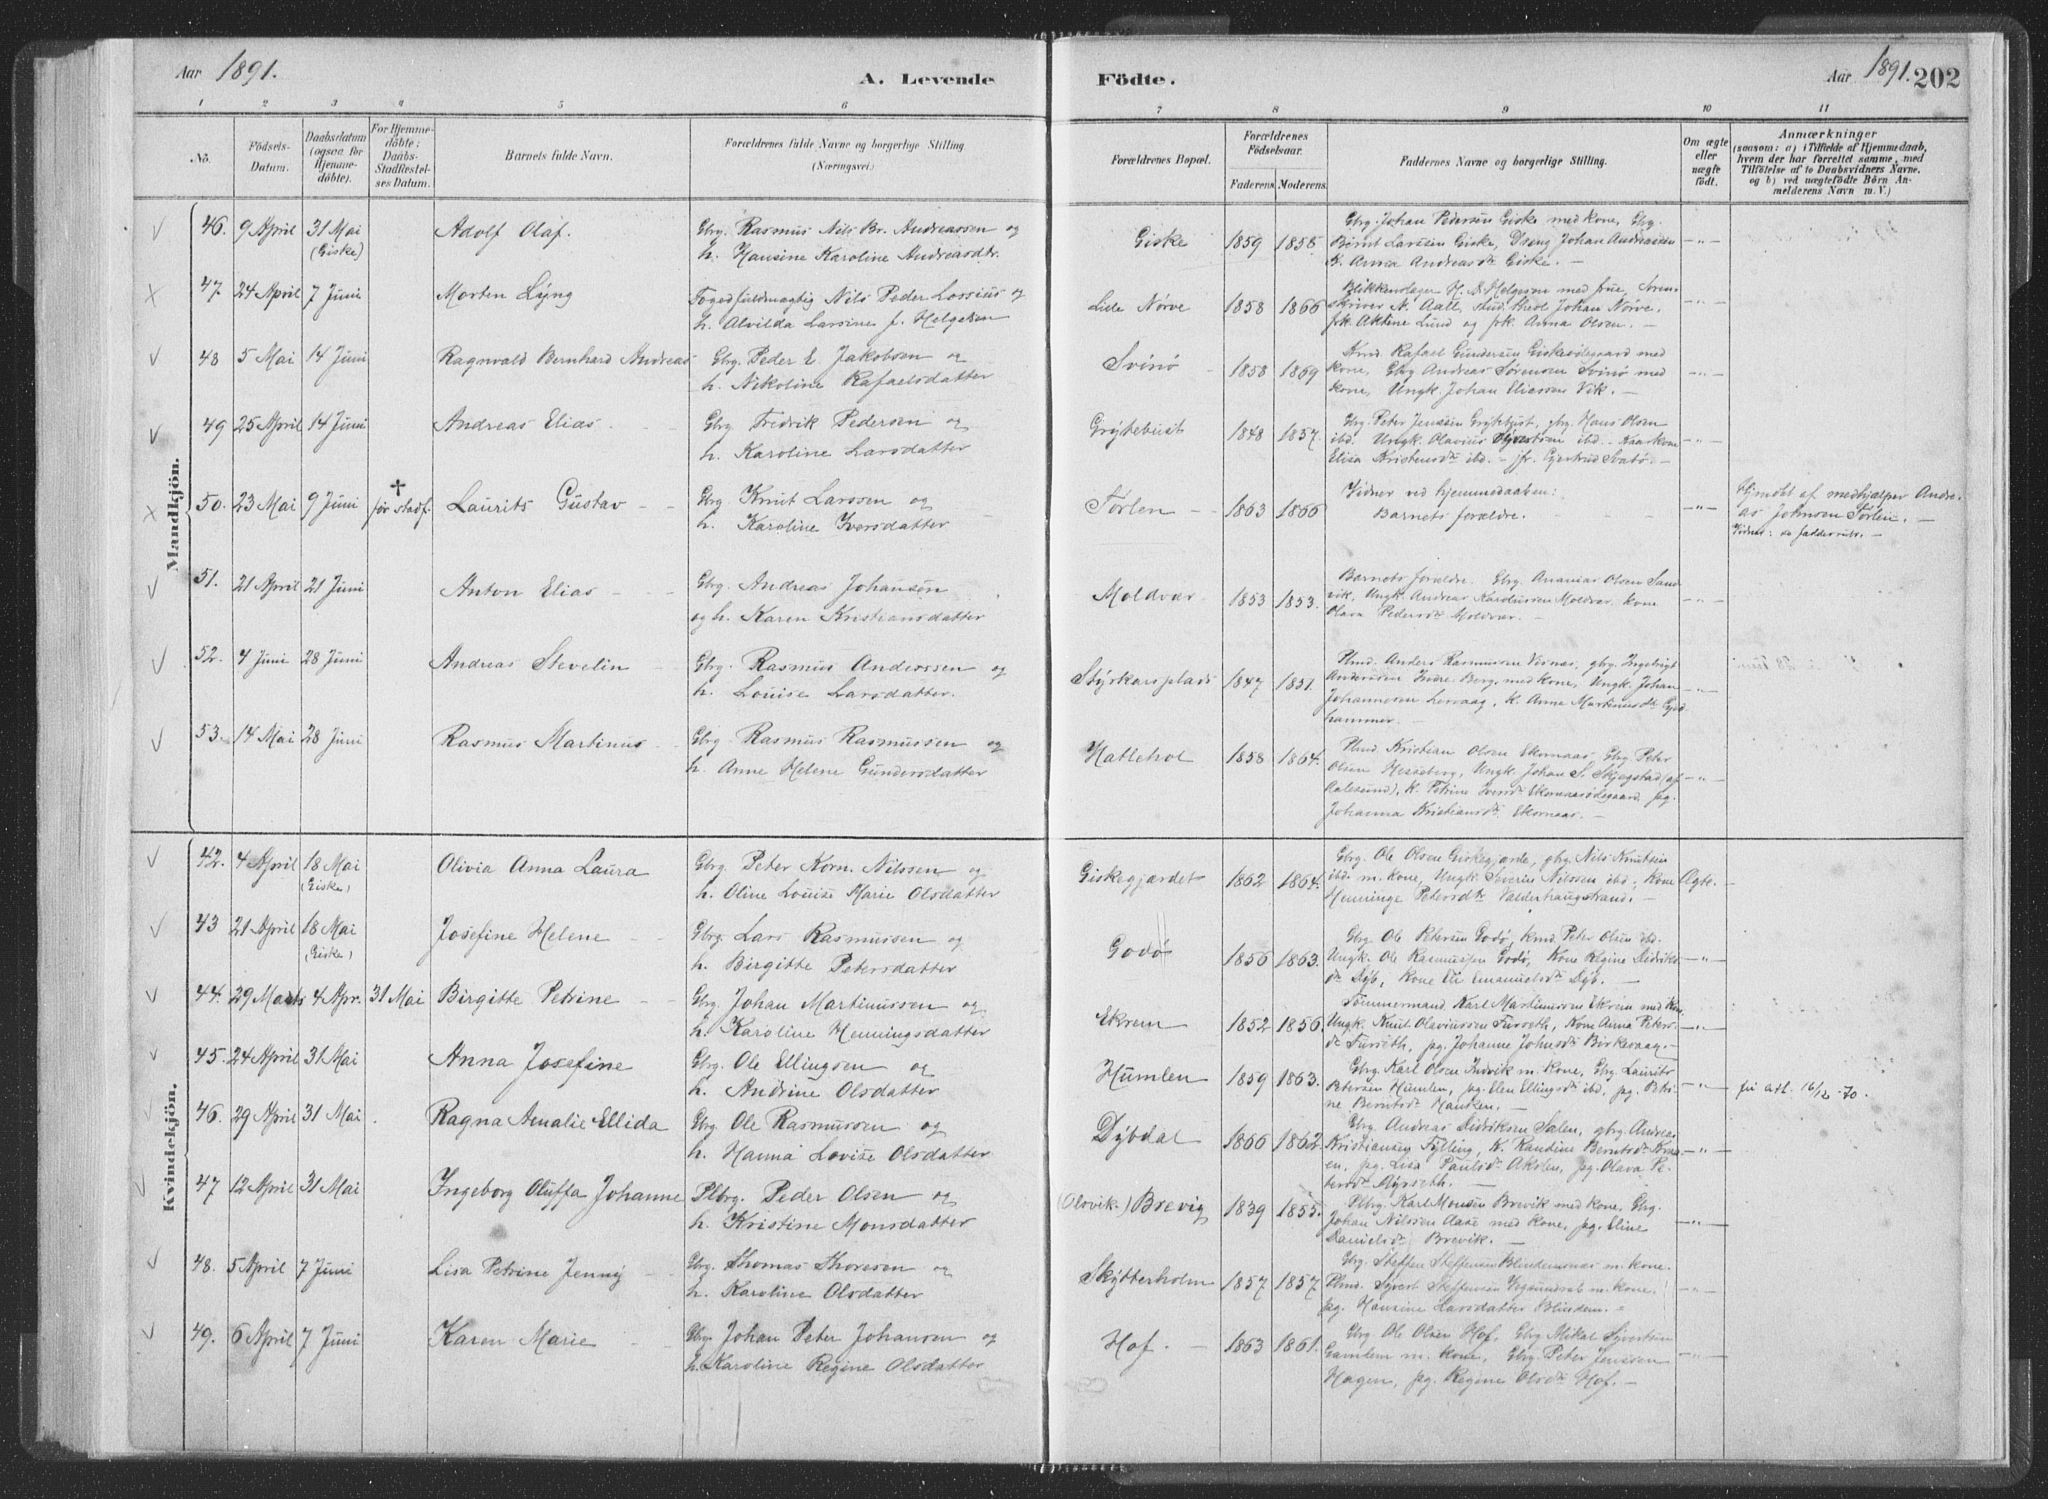 Aar 1891.
A. Levende
Födte.
Aar 1891. 202
1 2 3 4 5 6 7 8 9 10 11
No.
Födsels-Datum.
Daabsdatum (ogsaa for Hjemmedöbte).
For Hjemmedöbte: Daabs-Stadfæstelses Datum.
Barnets fulde Navn.
Forældrenes fulde Navne og borgerlige Stilling (Næringsvei.)
Forældrenes Bopæl.
Forældrenes Födselsaar.
Faderens. Moderens.
Faddernes Navne og borgerlige Stilling.
Om ægte eller uægte födt.
Anmærkninger
(saasom: a) i Tilfælde af Hjemmedaab, hvem der har forrettet samme, med Tilföielse af to Daabsvidners Navne, og b) ved uægtefödte Börn Anmelderens Navn m. V.)
Mandkjön.
46. 9 April 31 Mai (Giske) Adolf Olaf. Gbrg. Rasmus Nils Br. Andreassen og
h. Hansine Karoline Andreasdtr. Giske 1859 1855. Gbrg. Johan Pedersen Giske med kone, Gbrg.
Bernt Larssen Giske, Dreng Johan Andreassen
K. Anna Andreasdtr Giske. -
47. 24 April 7 Juni Morten Lyng Fogedfuldmægtig Nils Peder Lossius og
h. Alvilda Larsine f. Helgesen Lille Nørve 1858 1866 Blikkenslager H. Helgesen med frue, Soren-
skriver N. Aall, stud. theol Johan Nørve,
frk. Aktine Lund og frk. Anna Olsen. -
48 5 Mai 14 Juni Ragnvald Bernhard Andreas Gbrg. Peder E. Jakobsen og
h. Nikoline Rafaelsdatter Svinø 1858 1869 Kmd. Rafael Gundersen Giskeødegaard med
kone, Gbrg Andreas Sørensen Svinø med
kone, Ungk. Johan Eliassen Vik. -
49 25 April 14 Juni Andreas Elias. Gbrg Fredrik Pedersen og
h. Karoline Larsdatter Grytebust 1848 1857. Gbrg Peter Jenssen Grytebust, gbrg Hans Olsen
ibd. Ungk. Olavius Syvertsen ibd. Kaarkone
Elisa Kristensdtr ibd. - jfr. Gjertrud Svabø. -
50. 23 Mai 9 Juni † før stadf. Laurits Gustav Gbrg Knut Larssen og
h. Karoline Iversdatter Tørlen 1863 1866 Vidner ved hjemmedaaben:
Barnets forældre. Hjmdbt af medhjælper Andre-
as Johnsen Tørlen. -
Vidner: se fadderrubr. -
51. 21 April 21 Juni Anton Elias Gbrg. Andreas Johansen
og h. Karen Kristiansdatter Moldvær 1853 1853. Barnets forældre. Gbrg. Ananias Olsen Sand-
vik, Ungk. Andreas Moldvær, kone
Olava Pedersdtr Moldvær. -
52. 4 Juni 28 Juni Andreas Stevelin Gbrg. Rasmus Anderssen og
h. Louise Larsdatter. Styrkarsplads 1847 1851. Plmd. Anders Rasmussen Vesnes, gbrg. Ingebrigt
Anderssen Indre Berg, med kone, Ungk. Johan
Johannesen Lervaag, K. Anne Martinusdtr Gjed-
hammer.
53. 14 Mai 28 Juni Rasmus Martinus Gbrg. Rasmus Rasmussen og
h. Anne Helene Gundersdatter Hatlehol 1858 1864. Plmd. Kristian Olsen Ekornaas, Gbrg Peter
Olsen Hesseberg, Ungk. Johan S. Skjegstad (af
Aalesund), K. Petrine Iversdtr Ekornaasødegaard, pg.
Johanna Kristiansdtr Ekornaas. -
Kvindekjön.
42. 4 April 18 Mai (Giske) Olivia Anna Laura Gbrg. Peter Korn. Nilssen og
h. Oline Louise Marie Olsdatter Giskegjærdet 1862 1864. Gbrg. Ole Olsen Giskegjærde, gbrg Nils Knutsen
ibd. m. kone, Ungk. Severin Nilssen ibd., kone
Henninge Petersdtr Valderhaugstrand. - Ægte.
43 21 April 18 Mai (Giske) Josefine Helene Gbrg. Lars Rasmussen og
h. Birgitte Petersdatter Godø 1856 1863. Gbrg. Ole Petersen Godø, kmd. Peter Olsen ibd.
Ungk. Ole Rasmussen Godø, Kone Regine Didriks-
dtr Dyb, kone Eli Emanuelsdtr Dyb. -
44. 29 Marts 4 Apr. 31 Mai Birgitte Petrine Gbrg Johan Martinussen og
h. Karoline Henningsdatter Ekrem 1852 1856. Tømmermand Karl Martinussen Ekrem med kone
Ungk. Knut Olaviussen Furseth, Kone Anna Peters-
dtr Furseth, pg. Johanne Johnsdtr Birkevaag. -
45. 24 April 31 Mai Anna Josefine Gbrg. Ole Ellingsen og
h. Andrine Olsdatter Humlen 1859 1863. Gbrg. Karl Olsen Indrik m. kone, Gbrg. Laurits
Petersen Humlen, pg. Elen Ellingsdtr ibd, pg. Petri-
ne Berntsdtr Hanken. - fri att. 16/12-70.
46. 29 April 31 Mai Ragna Amalie Ellida Gbrg. Ole Rasmussen og
h. Hanna Lovise Olsdatter Dybdal 1866 1862. Gbrg. Andreas Didriksen Salen, gbrg. Andreas
Kristiansen Fylling, K. Randine Berntsdtr
pg. Lisa Paulsdtr Akslen, pg. Olava Pe-
dersdtr Myrseth. -
47 12 April 31 Mai Ingeborg Oluffa Johanne Plbrg. Peder Olsen og
h. Kristine Monsdatter (Olsvik.) Brevig 1839 1855. Plbrg. Karl Monsen Brevik med kone, Gbrg.
Johan Nilssen Aase med kone, pg. Eline
Danielsdtr Brevik. -
48. 5 April 7 Juni Lisa Petrine Jenny Gbrg. Thomas Thoresen og
h. Karoline Olsdatter Skytterholm 1857 1857 Gbrg. Steffen Steffensen Blindemsnes m. kone.
Plmd. Syvert Steffensen m. kone,
pg. Hansine Larsdatter Blindem. -
49. 6 April 7 Juni Karen Marie Gbrg Johan Peter Johansen og
h. Karoline Regine Olsdatter Hof. 1863 1861. Gbrg Ole Olsen Hof, Gbrg Mikal Syvertsen
Gamlem m. kone, Gbrg. Peter Jenssen
Hagen, pg. Regine Olsdtr Hof. -